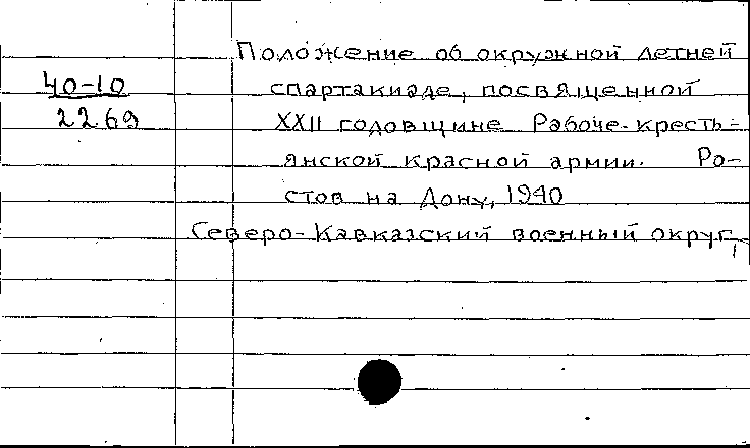 Положение об окружной летней
40-10
спартакиаде, посвященной
2269
XXII годовщине Рабоче-кресть-
янской красной армии. Ро-
стов на Дону, 1940
Северо-Кавказский военный округ,